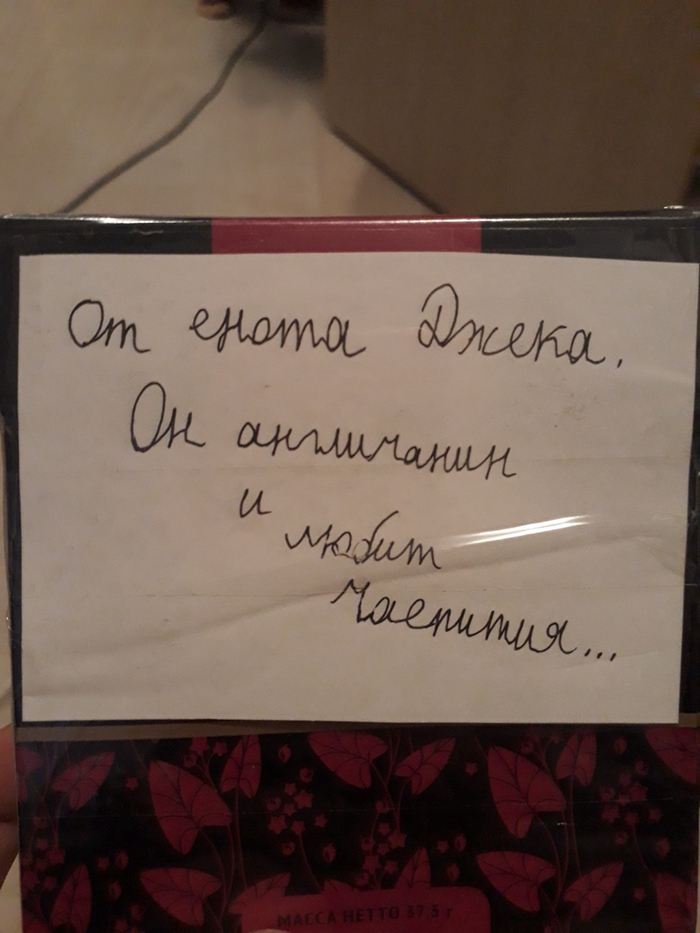 От енота Джека.
Он англичанин
и
любит
чаепития...
МАССА НЕТТО 37,5 г